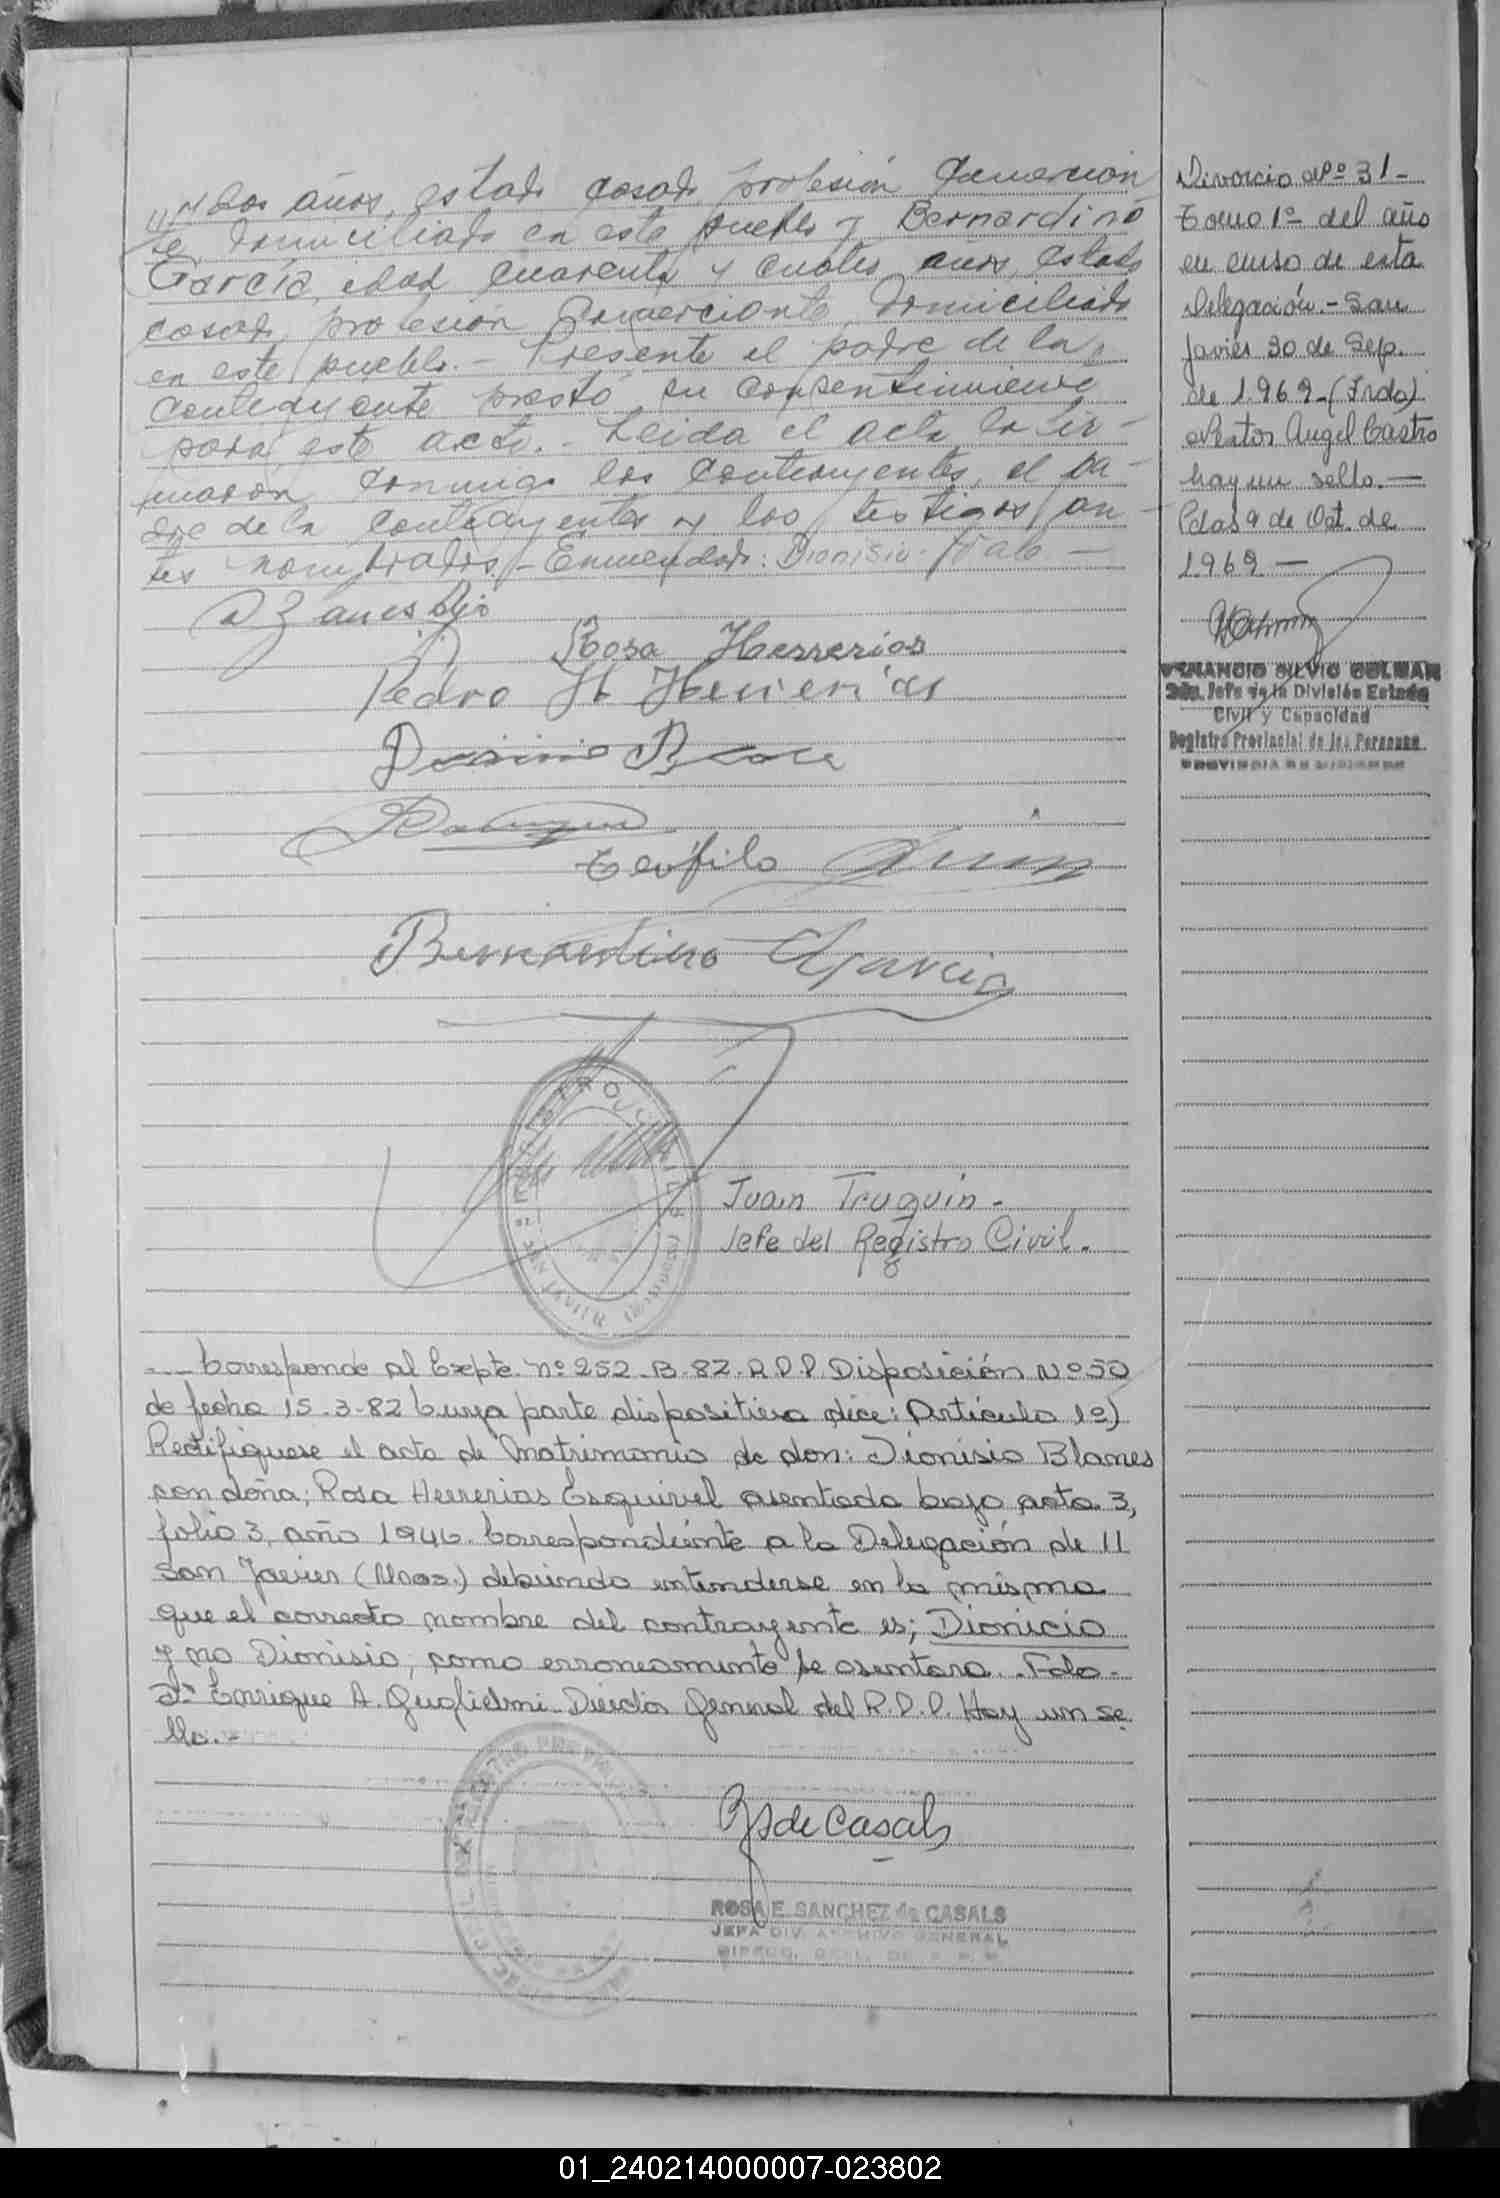 y dos años, estado casado, profesión Comercian
te, domiciliado en este pueblo y Bernardino
García, edad cuarenta y cuatro años, estado
casado, profesión Comerciante, domiciliado
en este pueblo.- Presente el padre de la
contrayente prestó su consentimiento
para este acto.- Leida el acta, la fir-
maron conmigo los contrayentes, el pa-
dre de la contrayentes y los testigos an-
tes nombrados.- Enmendado: Dionisio. Vale.-
Rosa Herrerias
Pedro H Herrerias
Teófilo
Bernardino Garcia
Juan Truquin.-
Jefe del Registro Civil.-
Corresponde al Expte. Nº 252-B-82. R.P.P. Disposición Nº 50
de fecha 15-3-82 Cuya parte dispositiva dice: Artículo 1º)
Rectifiquese el acta de Matrimonio de don: Dionisio Blanes
con doña; Rosa Herrerias Esquivel asentada bajo acta 3,
folio 3, año 1946. Correspondiente a la Delegación de 11
San Javier (Mnes.) debiendo entenderse en la misma
que el correcto nombre del contrayente es; Dionicio
y no Dionisio, como erroneamente se asentara. Fdo-
Enrique A. Guglielmi. Director General del R.P.P. Hay un se
llo.-
de Casals
ROSA E. SANCHEZ de CASALS
JEFA DIV. ARCHIVO GENERAL
Divorcio Nº 31-
Tomo 1º del año
en curso de esta
Delegación.- San
Javier 30 de Sep.
de 1.969-(Frdo)
Nestor Angel Castro
hay un sello.-
Pdas 9 de Oct. de
1.969-
VENANCIO SILVIO COLMAN
2do. Jefe de la División Estado
Civil y Capacidad
Registro Provincial de las Personas
PROVINCIA DE MISIONES
01_240214000007-023802